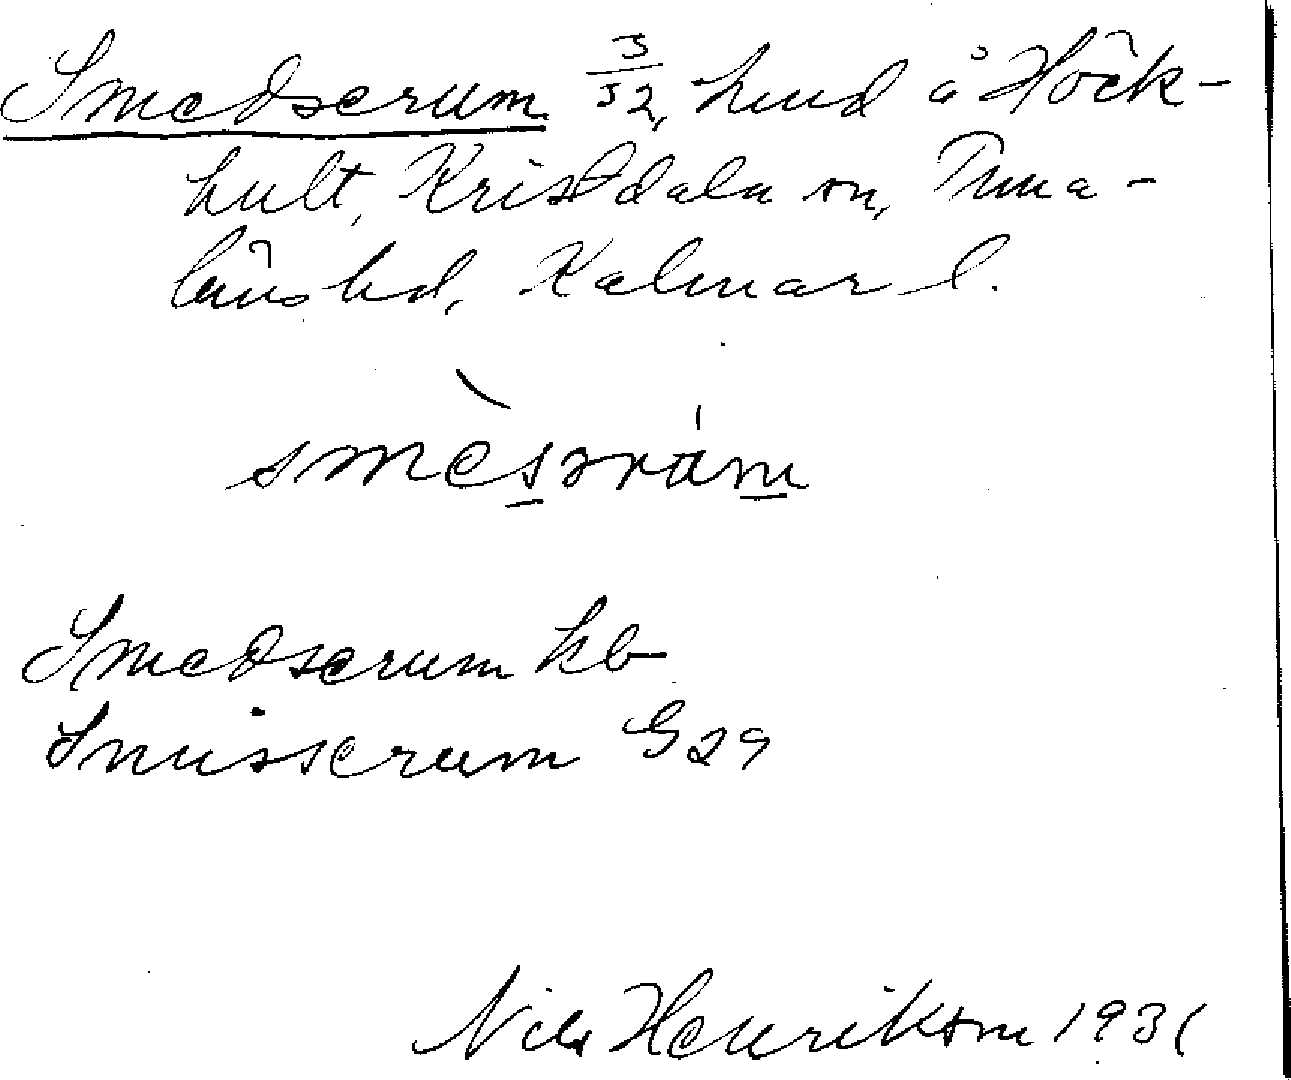 Smedserum 3/32, hmd å Höck-
hult, Kristdala sn, Tuna-
läns hd, Kalmar l.
smèsəråm
Smedserum kb
Smisserum G29
Nils Henrikson 1931